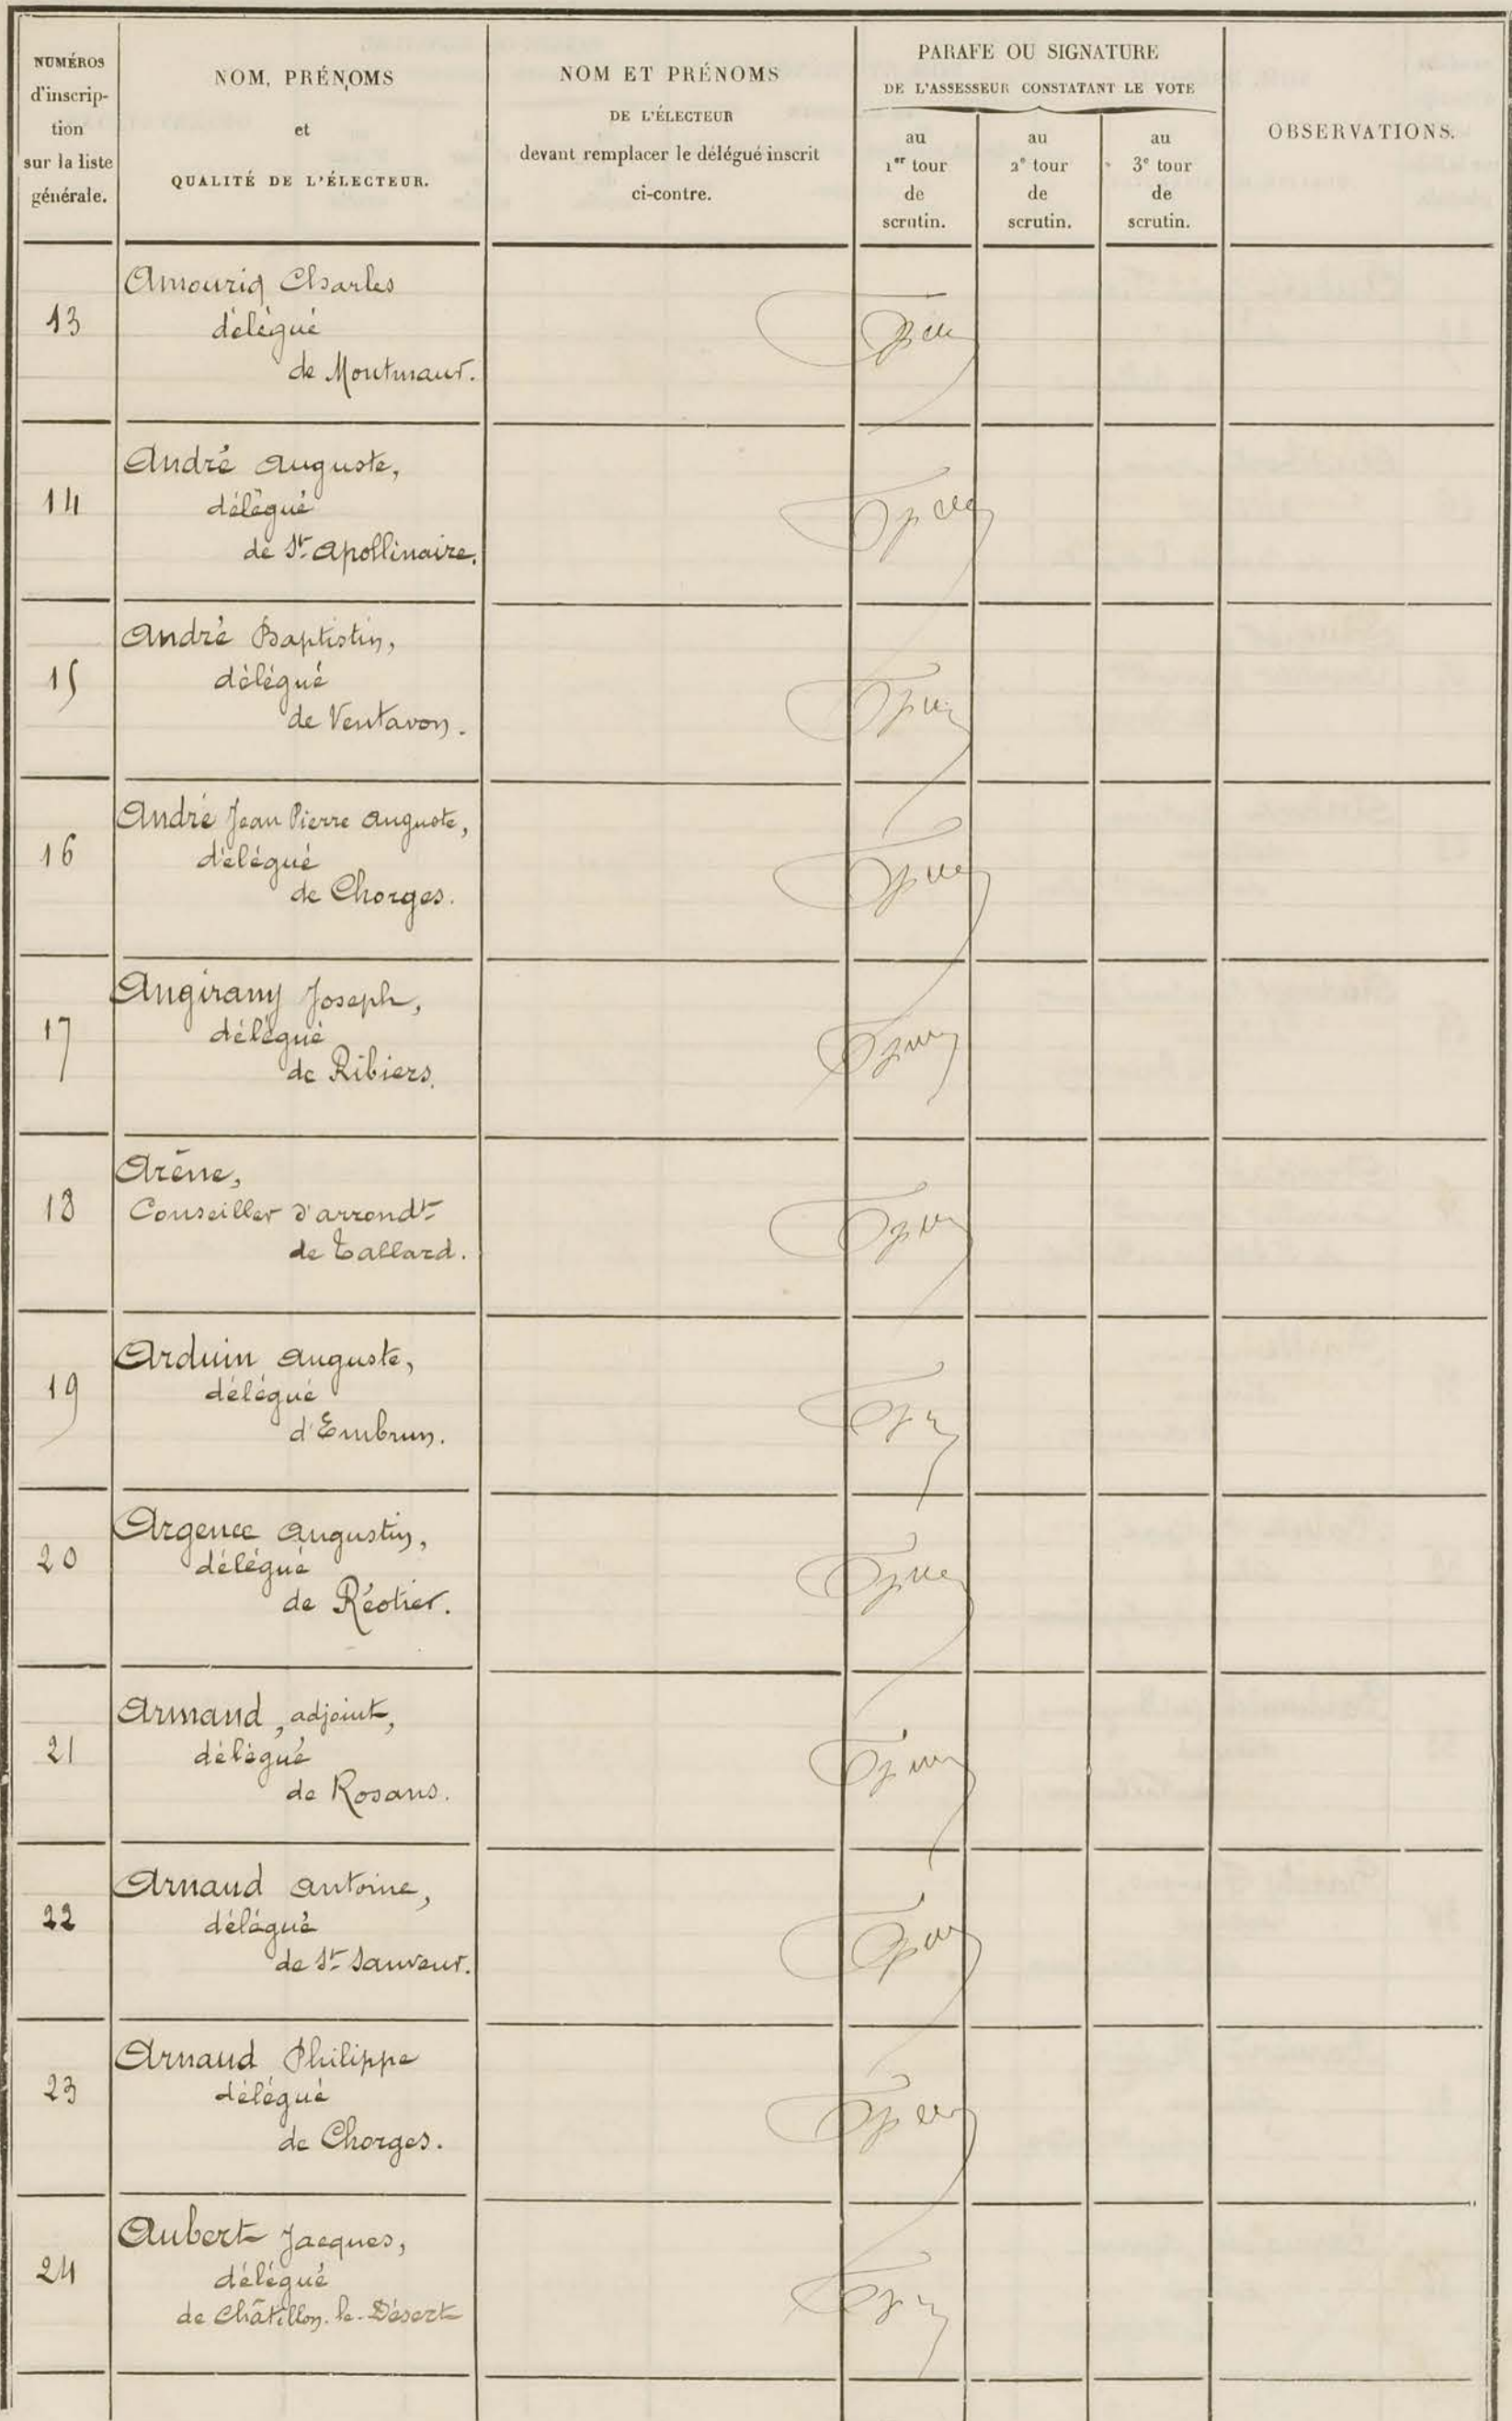 NUMÉROS
d'inscrip-
tion
sur la liste
générale.
NOM, PRÉNOMS
et
QUALITÉ DE L'ÉLECTEUR.
NOM ET PRÉNOMS
DE L'ÉLECTEUR
devant remplacer le délégué inscrit
ci-contre.
PARAFE OU SIGNATURE
DE L'ASSESSEUR CONSTATANT LE VOTE
au
1er tour
de
scrutin.
au
2e tour
de
scrutin.
au
3e tour
de
scrutin.
OBSERVATIONS.
13
Amouriq Charles
délégué
de Montmaur.
14
André Auguste,
délégué
de St Apollinaire.
15
André Baptistin,
délégué
de Ventavon.
16
André Jean Pierre Auguste,
délégué
de Chorges.
17
Angirany Joseph,
délégué
de Ribiers.
18
Arène,
Conseiller d'arrondt
de Tallard.
19
Arduin Auguste,
délégué
d'Embrun.
20
Argence Augustin,
délégué
de Réotier.
21
Armand, adjoint,
délégué
de Rosans.
22
Arnaud Antoine,
délégué
de St Sauveur.
23
Arnaud Philippe
délégué
de Chorges.
24
Aubert Jacques,
délégué
de Châtillon-le-Désert